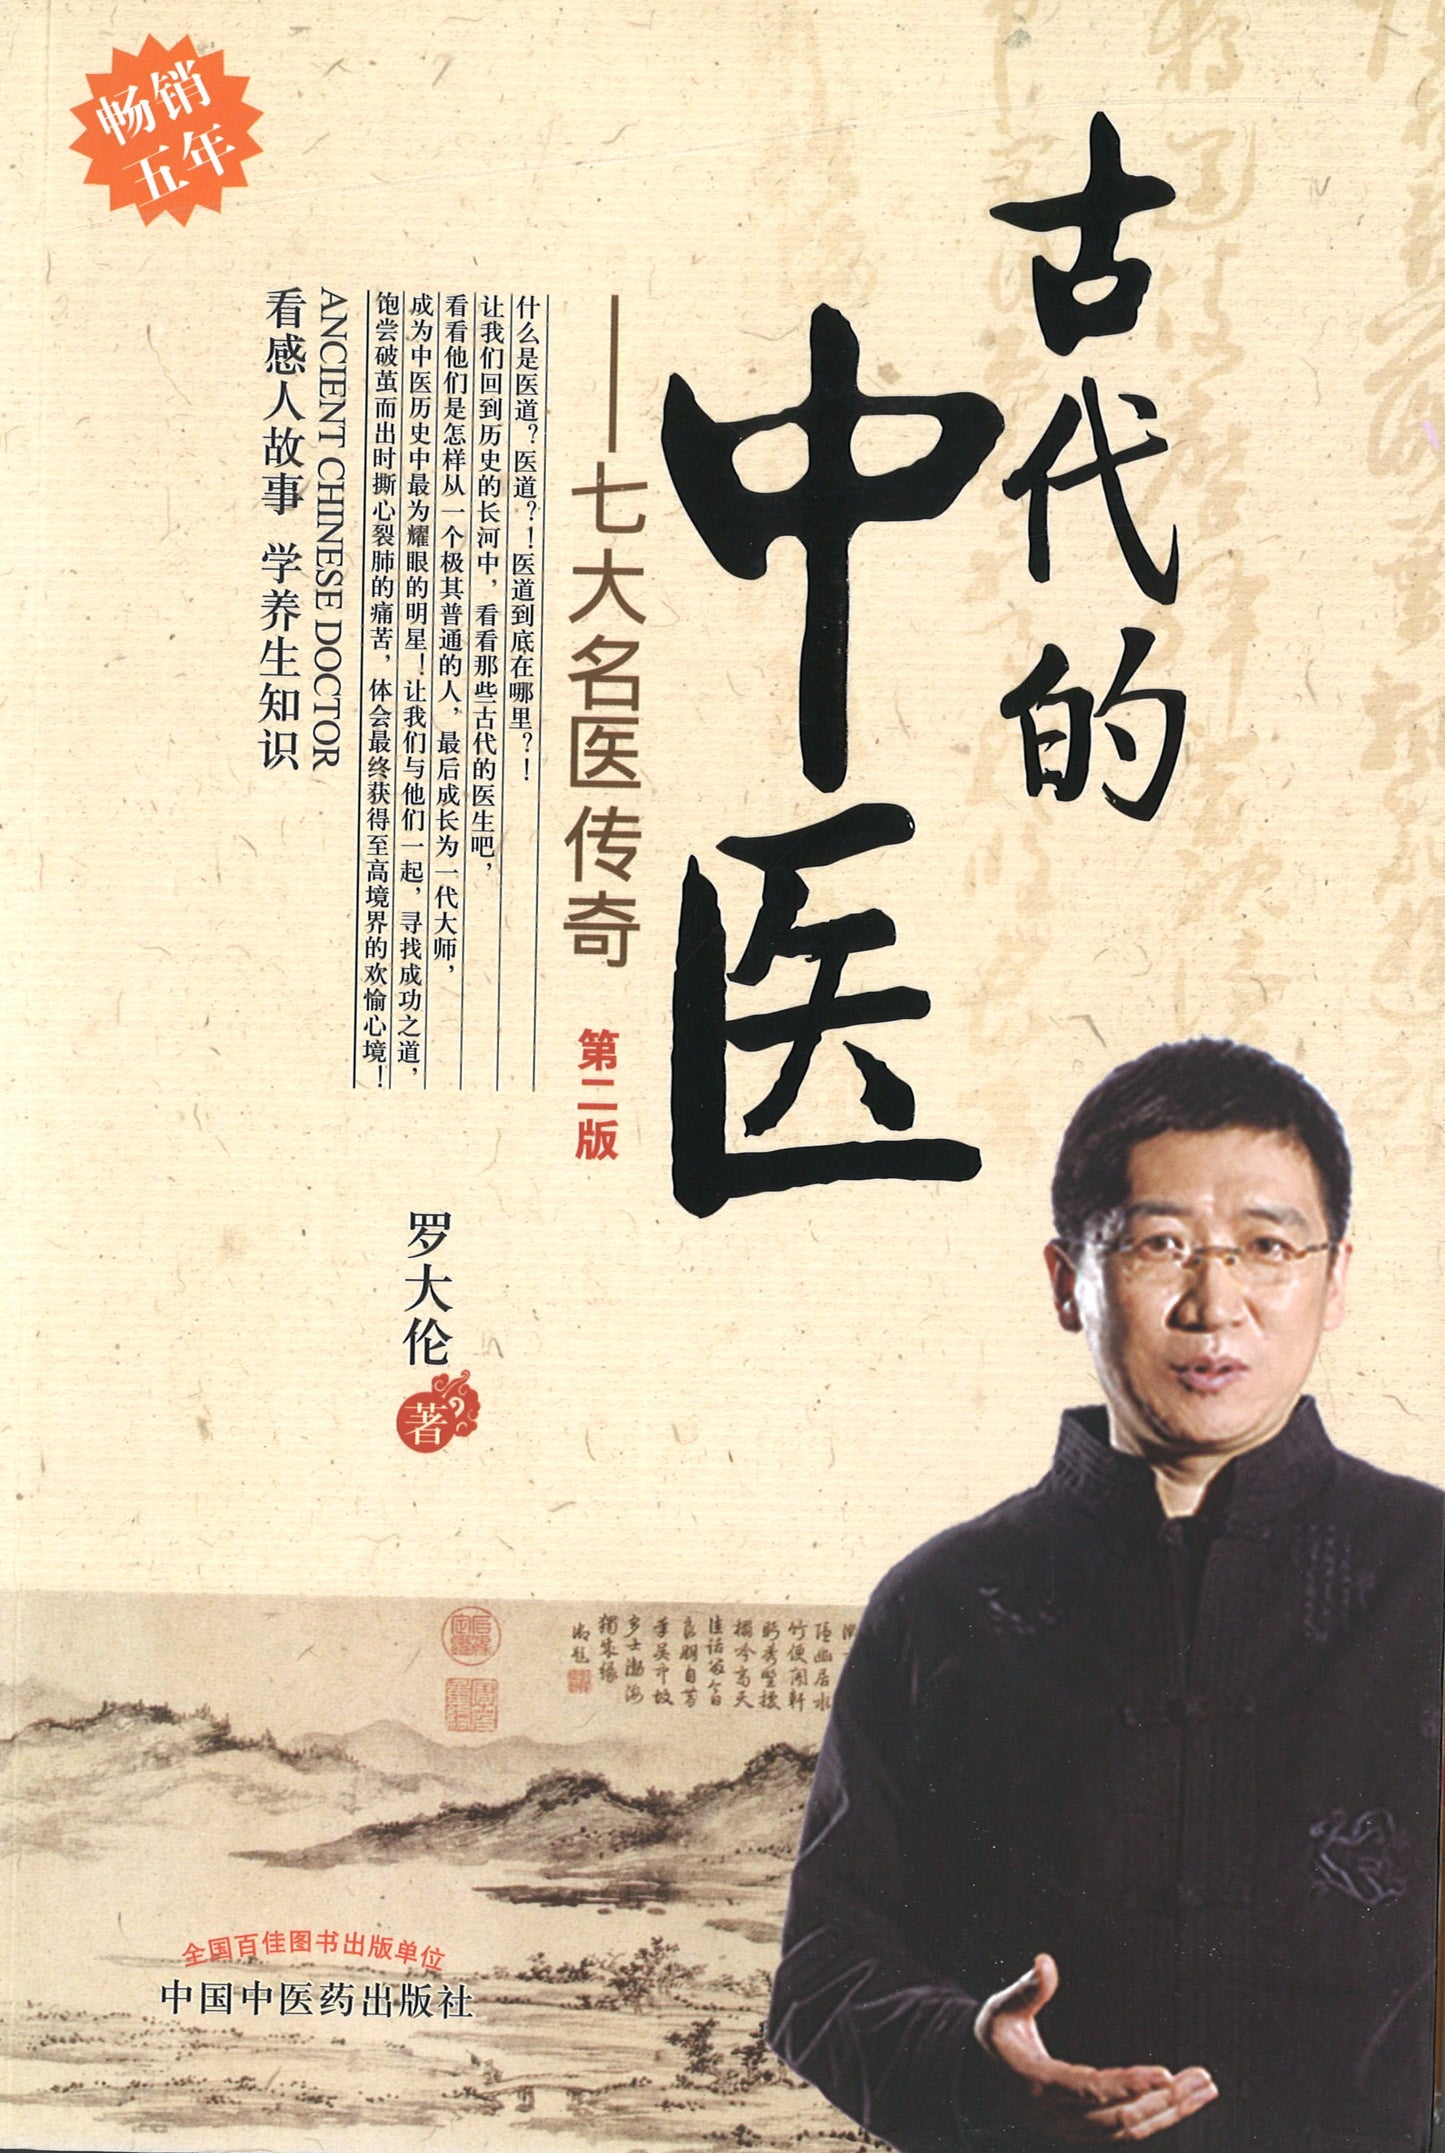 畅销
五年
古代的
中医
——七大名医传奇
第二版
什么是医道？医道？！医道到底在哪里？！
让我们回到历史的长河中，看看那些古代的医生吧，
看看他们是怎样从一个极其普通的人，最后成长为一代大师，
成为中医历史中最为耀眼的明星！让我们与他们一起，寻找成功之道，
饱尝破茧而出时撕心裂肺的痛苦，体会最终获得至高境界的欢愉心境！
ANCIENT CHINESE DOCTOR
看感人故事 学养生知识
罗大伦
著
全国百佳图书出版单位
中国中医药出版社